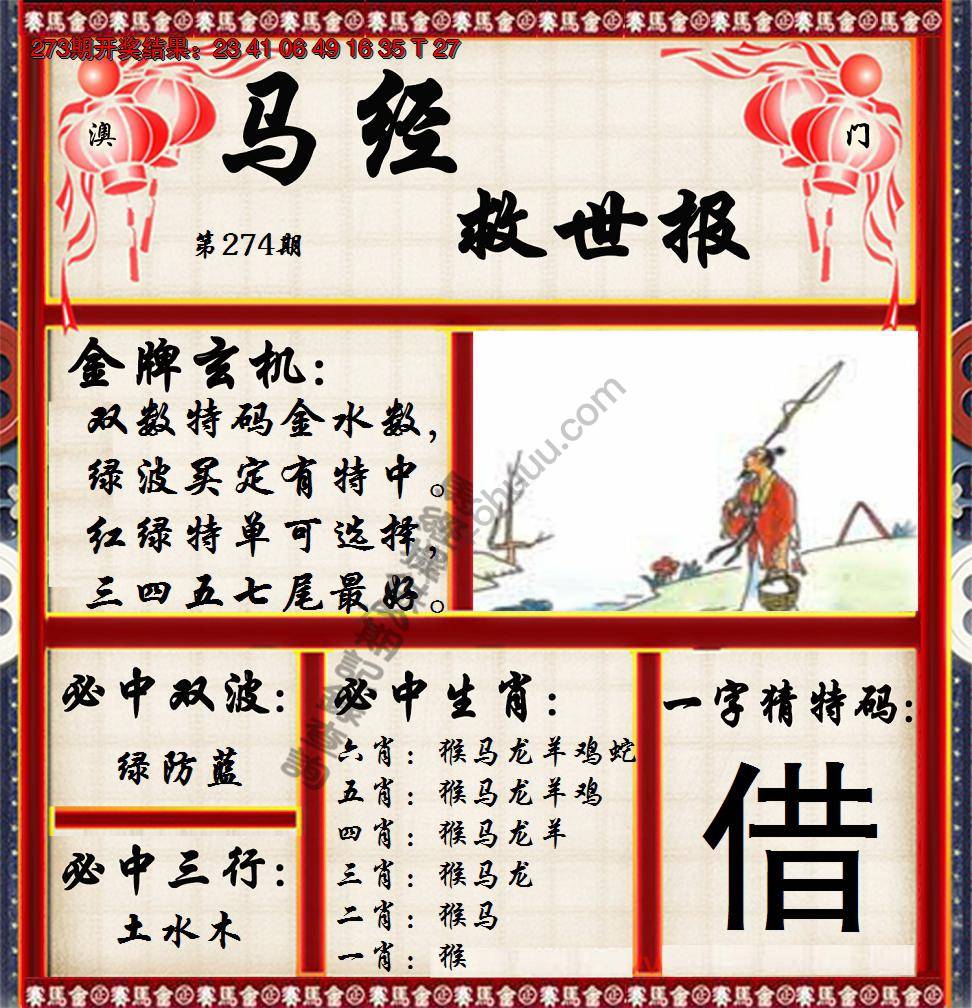 273期开奖结果：23 41 06 49 16 35 T 27
澳 门
马经
救世报
第274期
金牌玄机：
双数特码金水数，
绿波买定有特中。
红绿特单可选择，
三四五七尾最好。
必中双波：
绿防蓝
必中三行：
土水木
必中生肖：
六肖：猴马龙羊鸡蛇
五肖：猴马龙羊鸡
四肖：猴马龙羊
三肖：猴马龙
二肖：猴马
一肖：猴
一字猜特码：
借